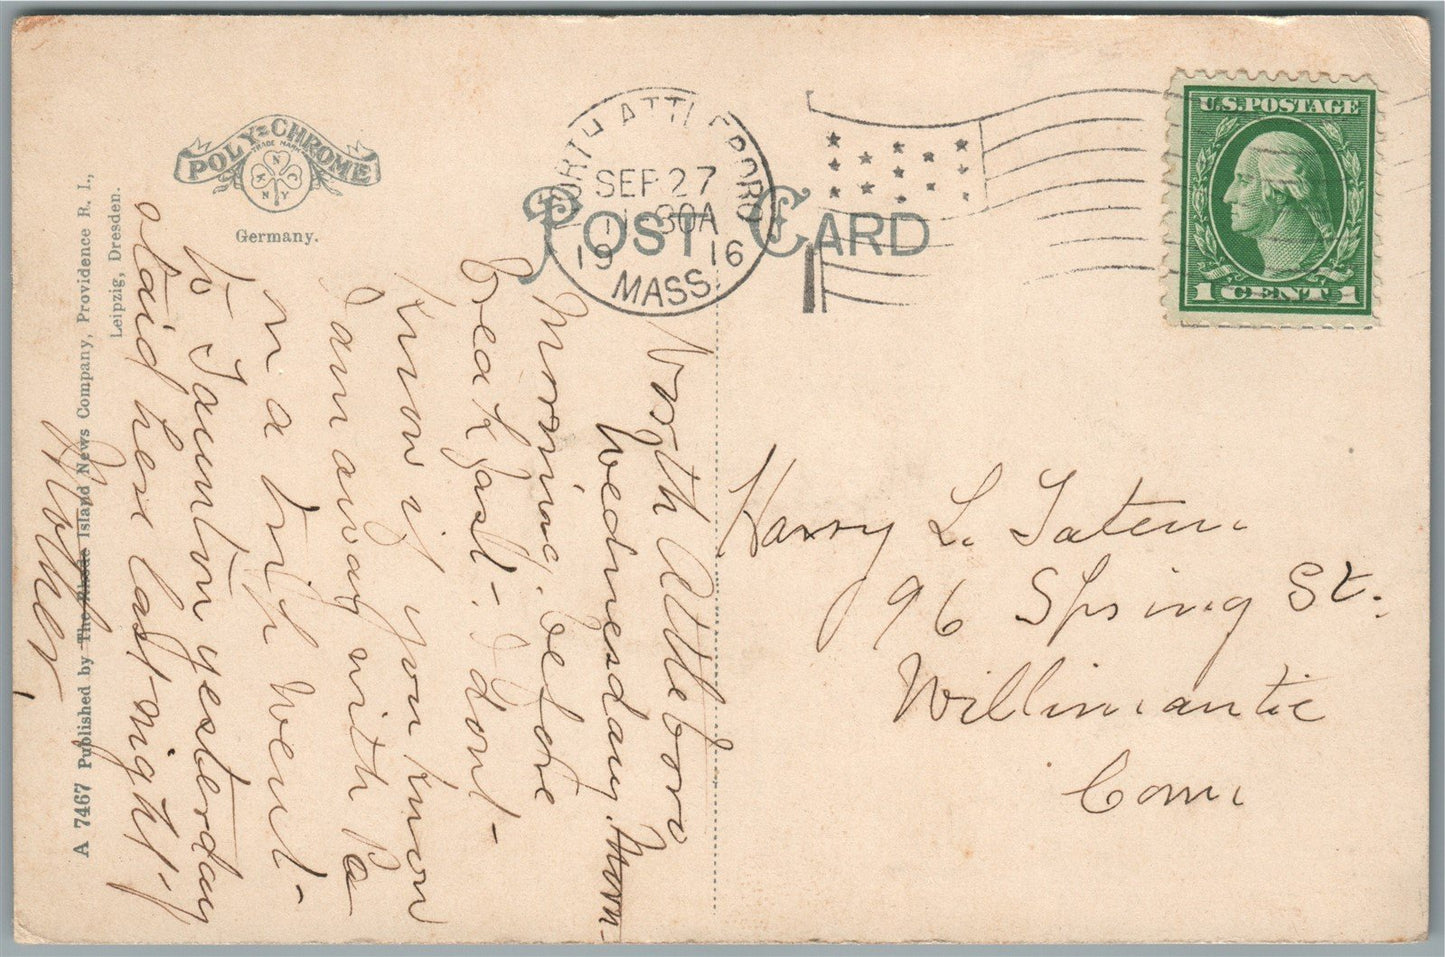 POLY-CHROME
TRADE MARK
N
K C
N Y
Germany.
NORTH ATTLEBORO
SEP 27
11 30A
19 16
MASS.
POST CARD
U.S. POSTAGE
1 CENT 1
North Attleboro
Wednesday. Morn-
Morning. before
breakfast-. I dont-
know if you know
I am away with Pa
on a trip went-
to Taunton yesterday
staid here last-night-
Mother
Harry L. Tatem
96 Spring St.
Willimantic
Conn
A 7467 Published by The Rhode Island News Company, Providence R. I.,
Leipzig, Dresden.